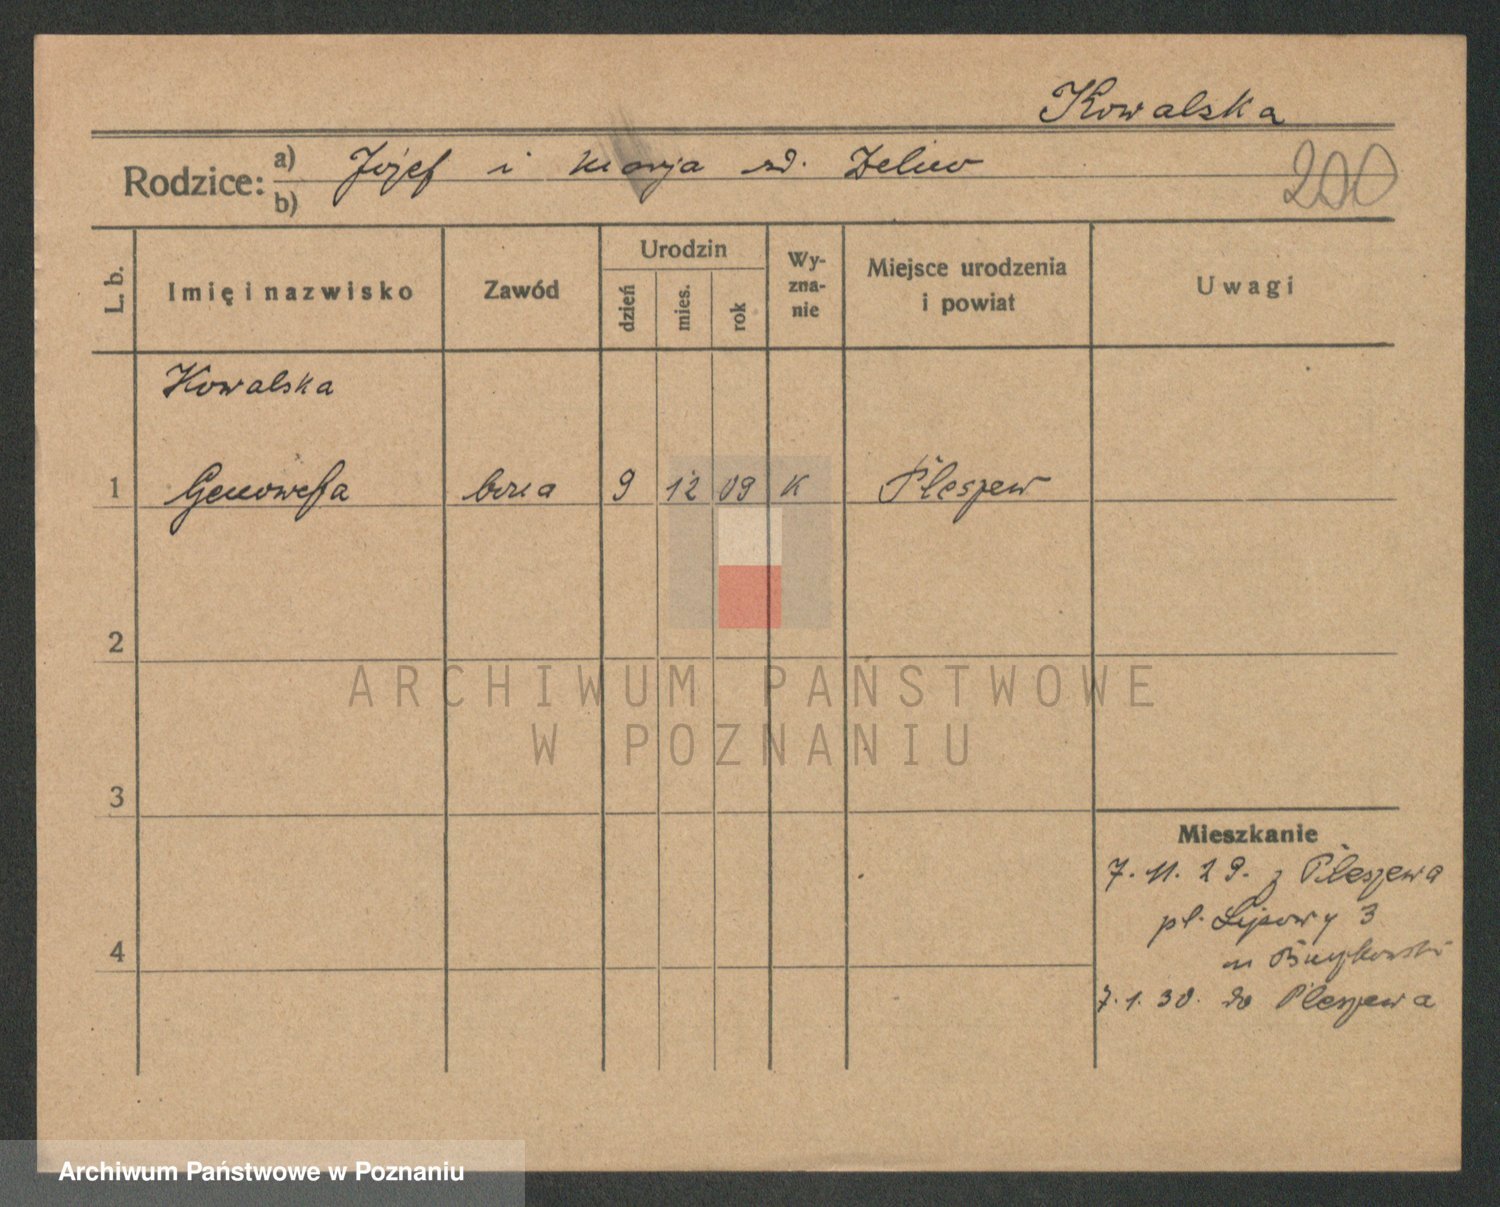 Kowalska
Rodzice: a) b) Józef i Marja zd. 
200
L. b. Imię i nazwisko Zawód Urodzin dzień mies. rok Wy-zna-nie Miejsce urodzenia i powiat Uwagi
Kowalska
1 Genowefa bona 9 12 09 K Pleszew
2
3
4
Mieszkanie
7. 11. 29. z Pleszewa
pl. Lipowy 3
7. 1. 30. do Pleszewa
ARCHIWUM PAŃSTWOWE
W POZNANIU
Archiwum Państwowe w Poznaniu